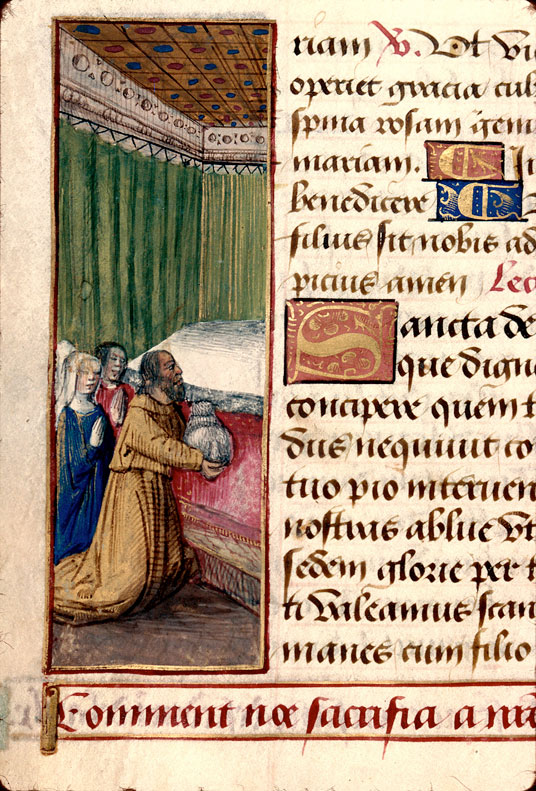 riam ℣. Ut vi
operiet gracia cul
spina rosam gen
mariam.
benedicere
filius sit nobis ad
picius amen Lec
Sancta de
que dign
concipere quem t
dus nequiuit co
tuo pio interuen
nostras ablue vt
sedem glorie per t
ti valeamus scan
manes cum filio
Comment noe sacrifia a nr̄e